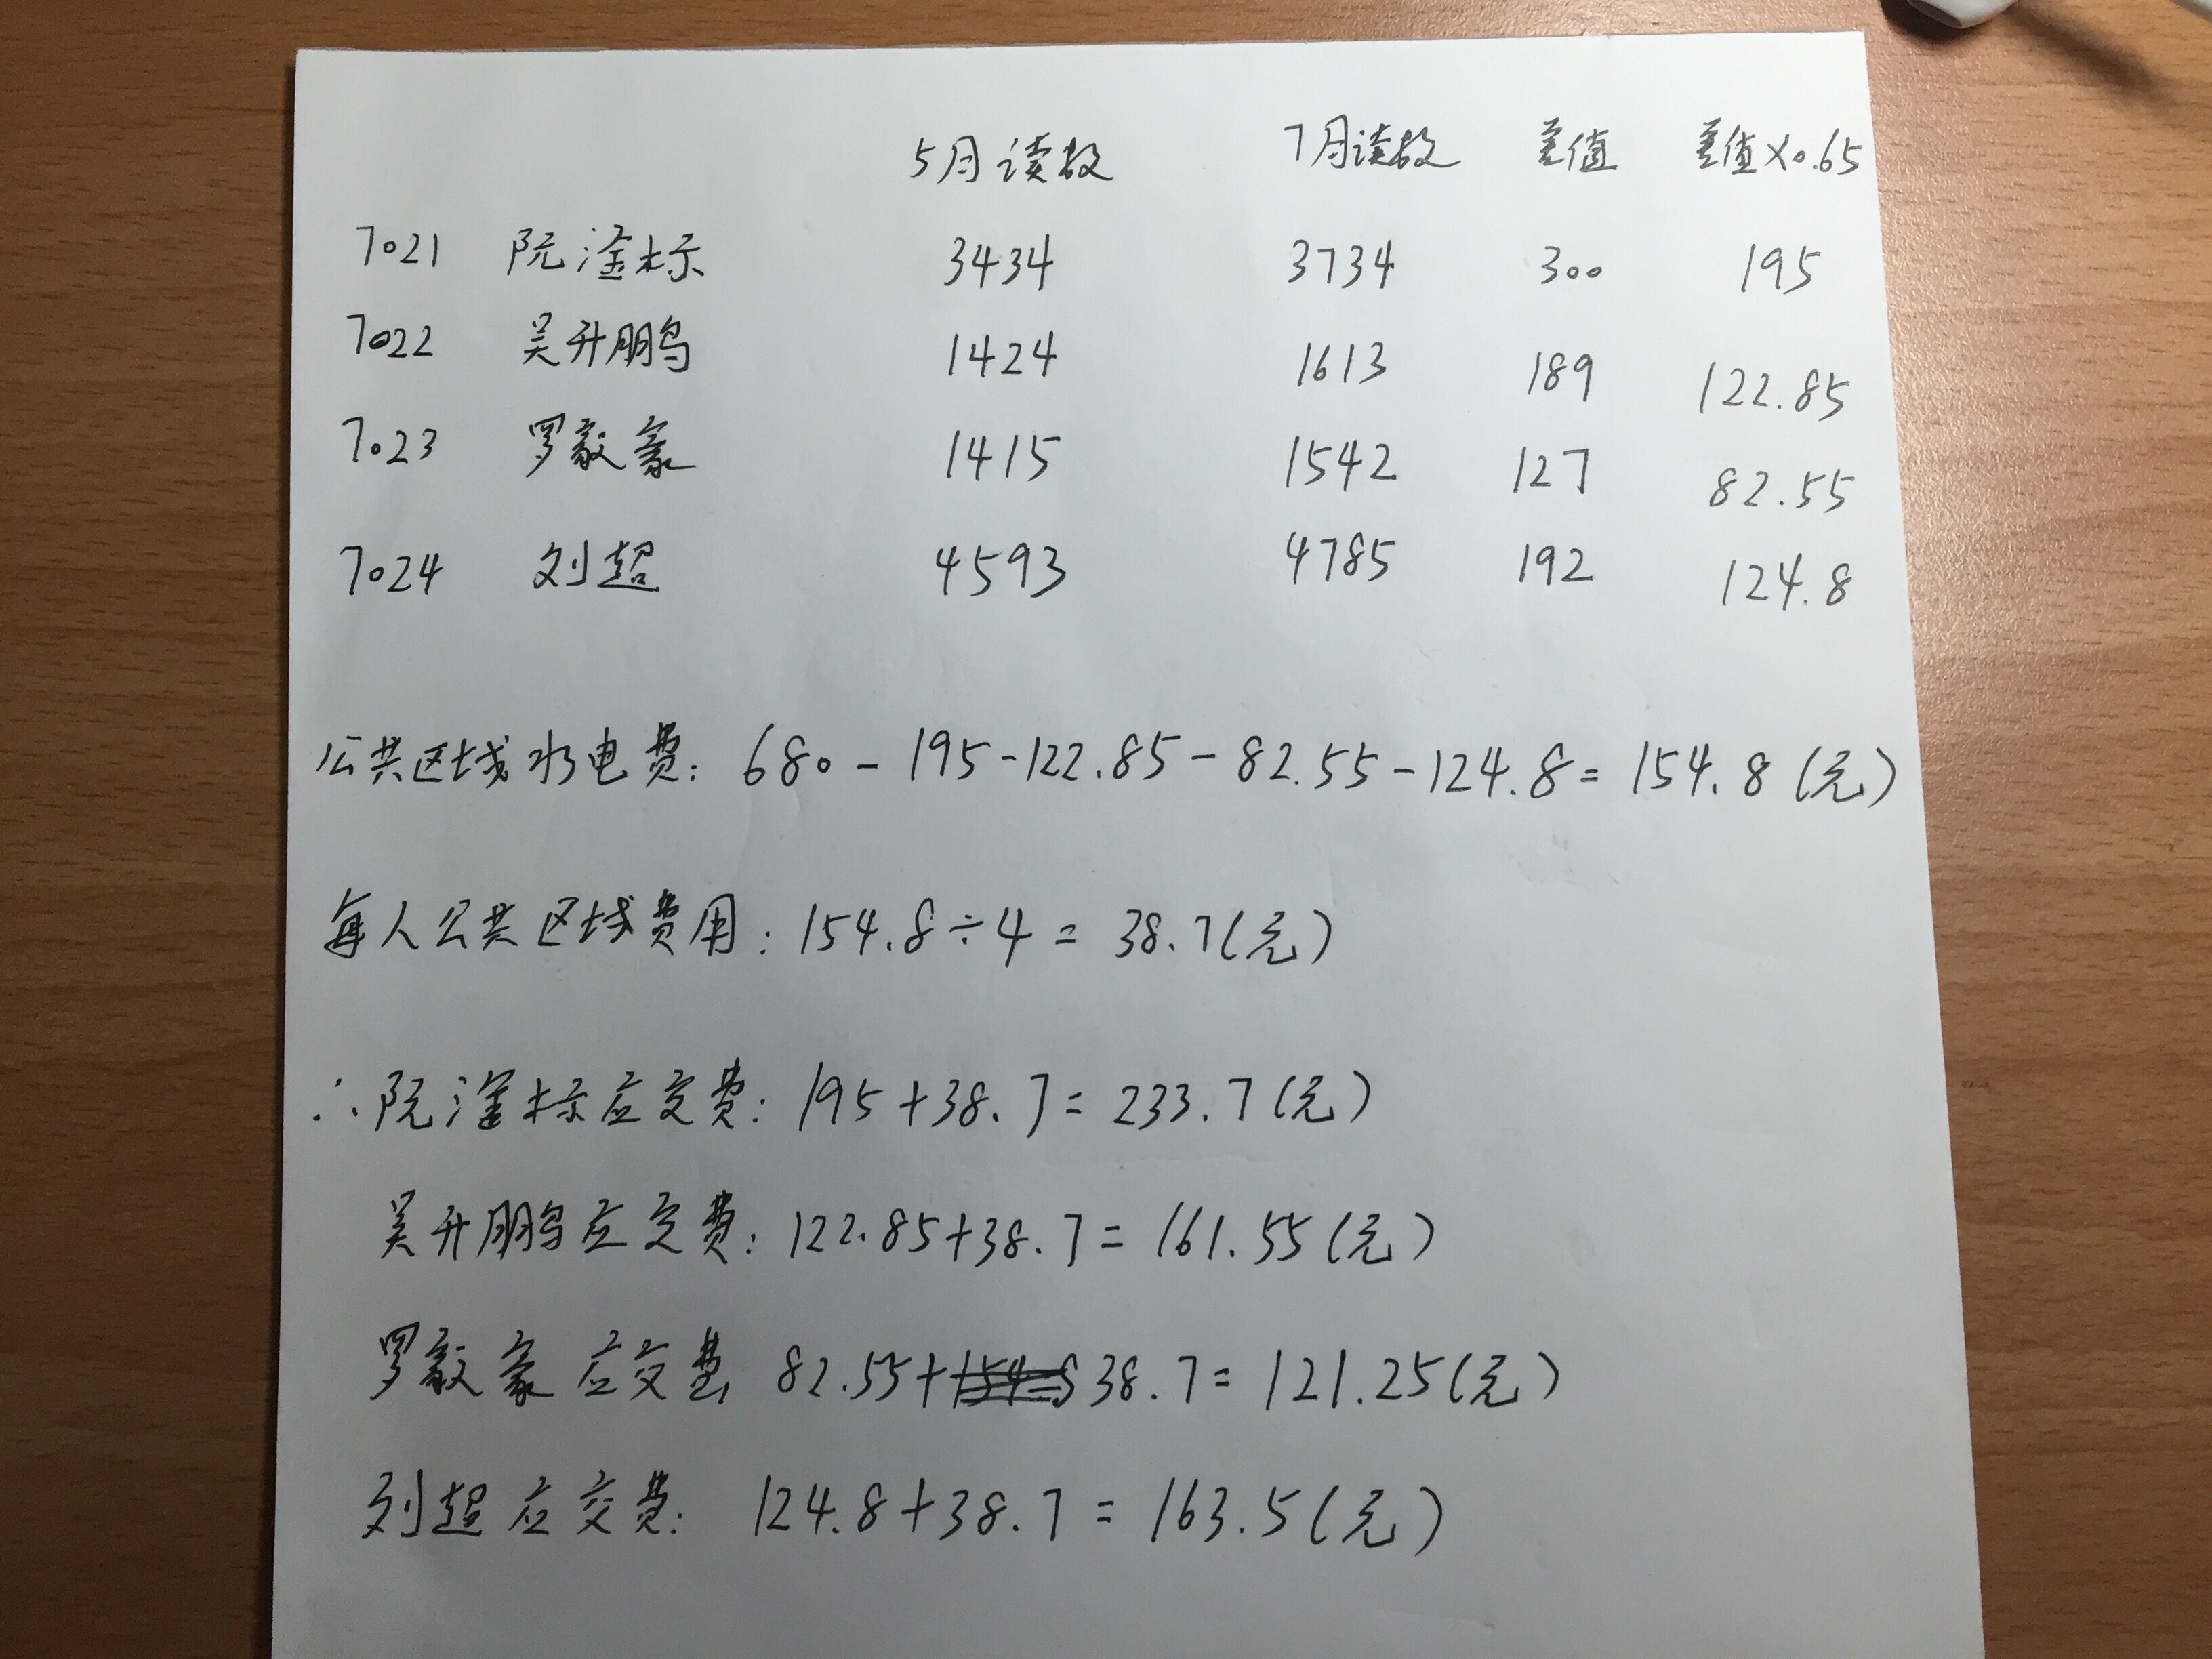 5月读数 7月读数 差值 差值×0.65
7021 阮淦标 3434 3734 300 195
7022 吴升鹏 1424 1613 189 122.85
7023 罗毅豪 1415 1542 127 82.55
7024 刘超 4593 4785 192 124.8
公共区域水电费: 680-195-122.85-82.55-124.8=154.8(元)
每人公共区域费用: 154.8÷4=38.7(元)
∴阮淦标应交费: 195+38.7=233.7(元)
吴升鹏应交费: 122.85+38.7=161.55(元)
罗毅豪应交费 82.55+38.7=121.25(元)
刘超应交费: 124.8+38.7=163.5(元)